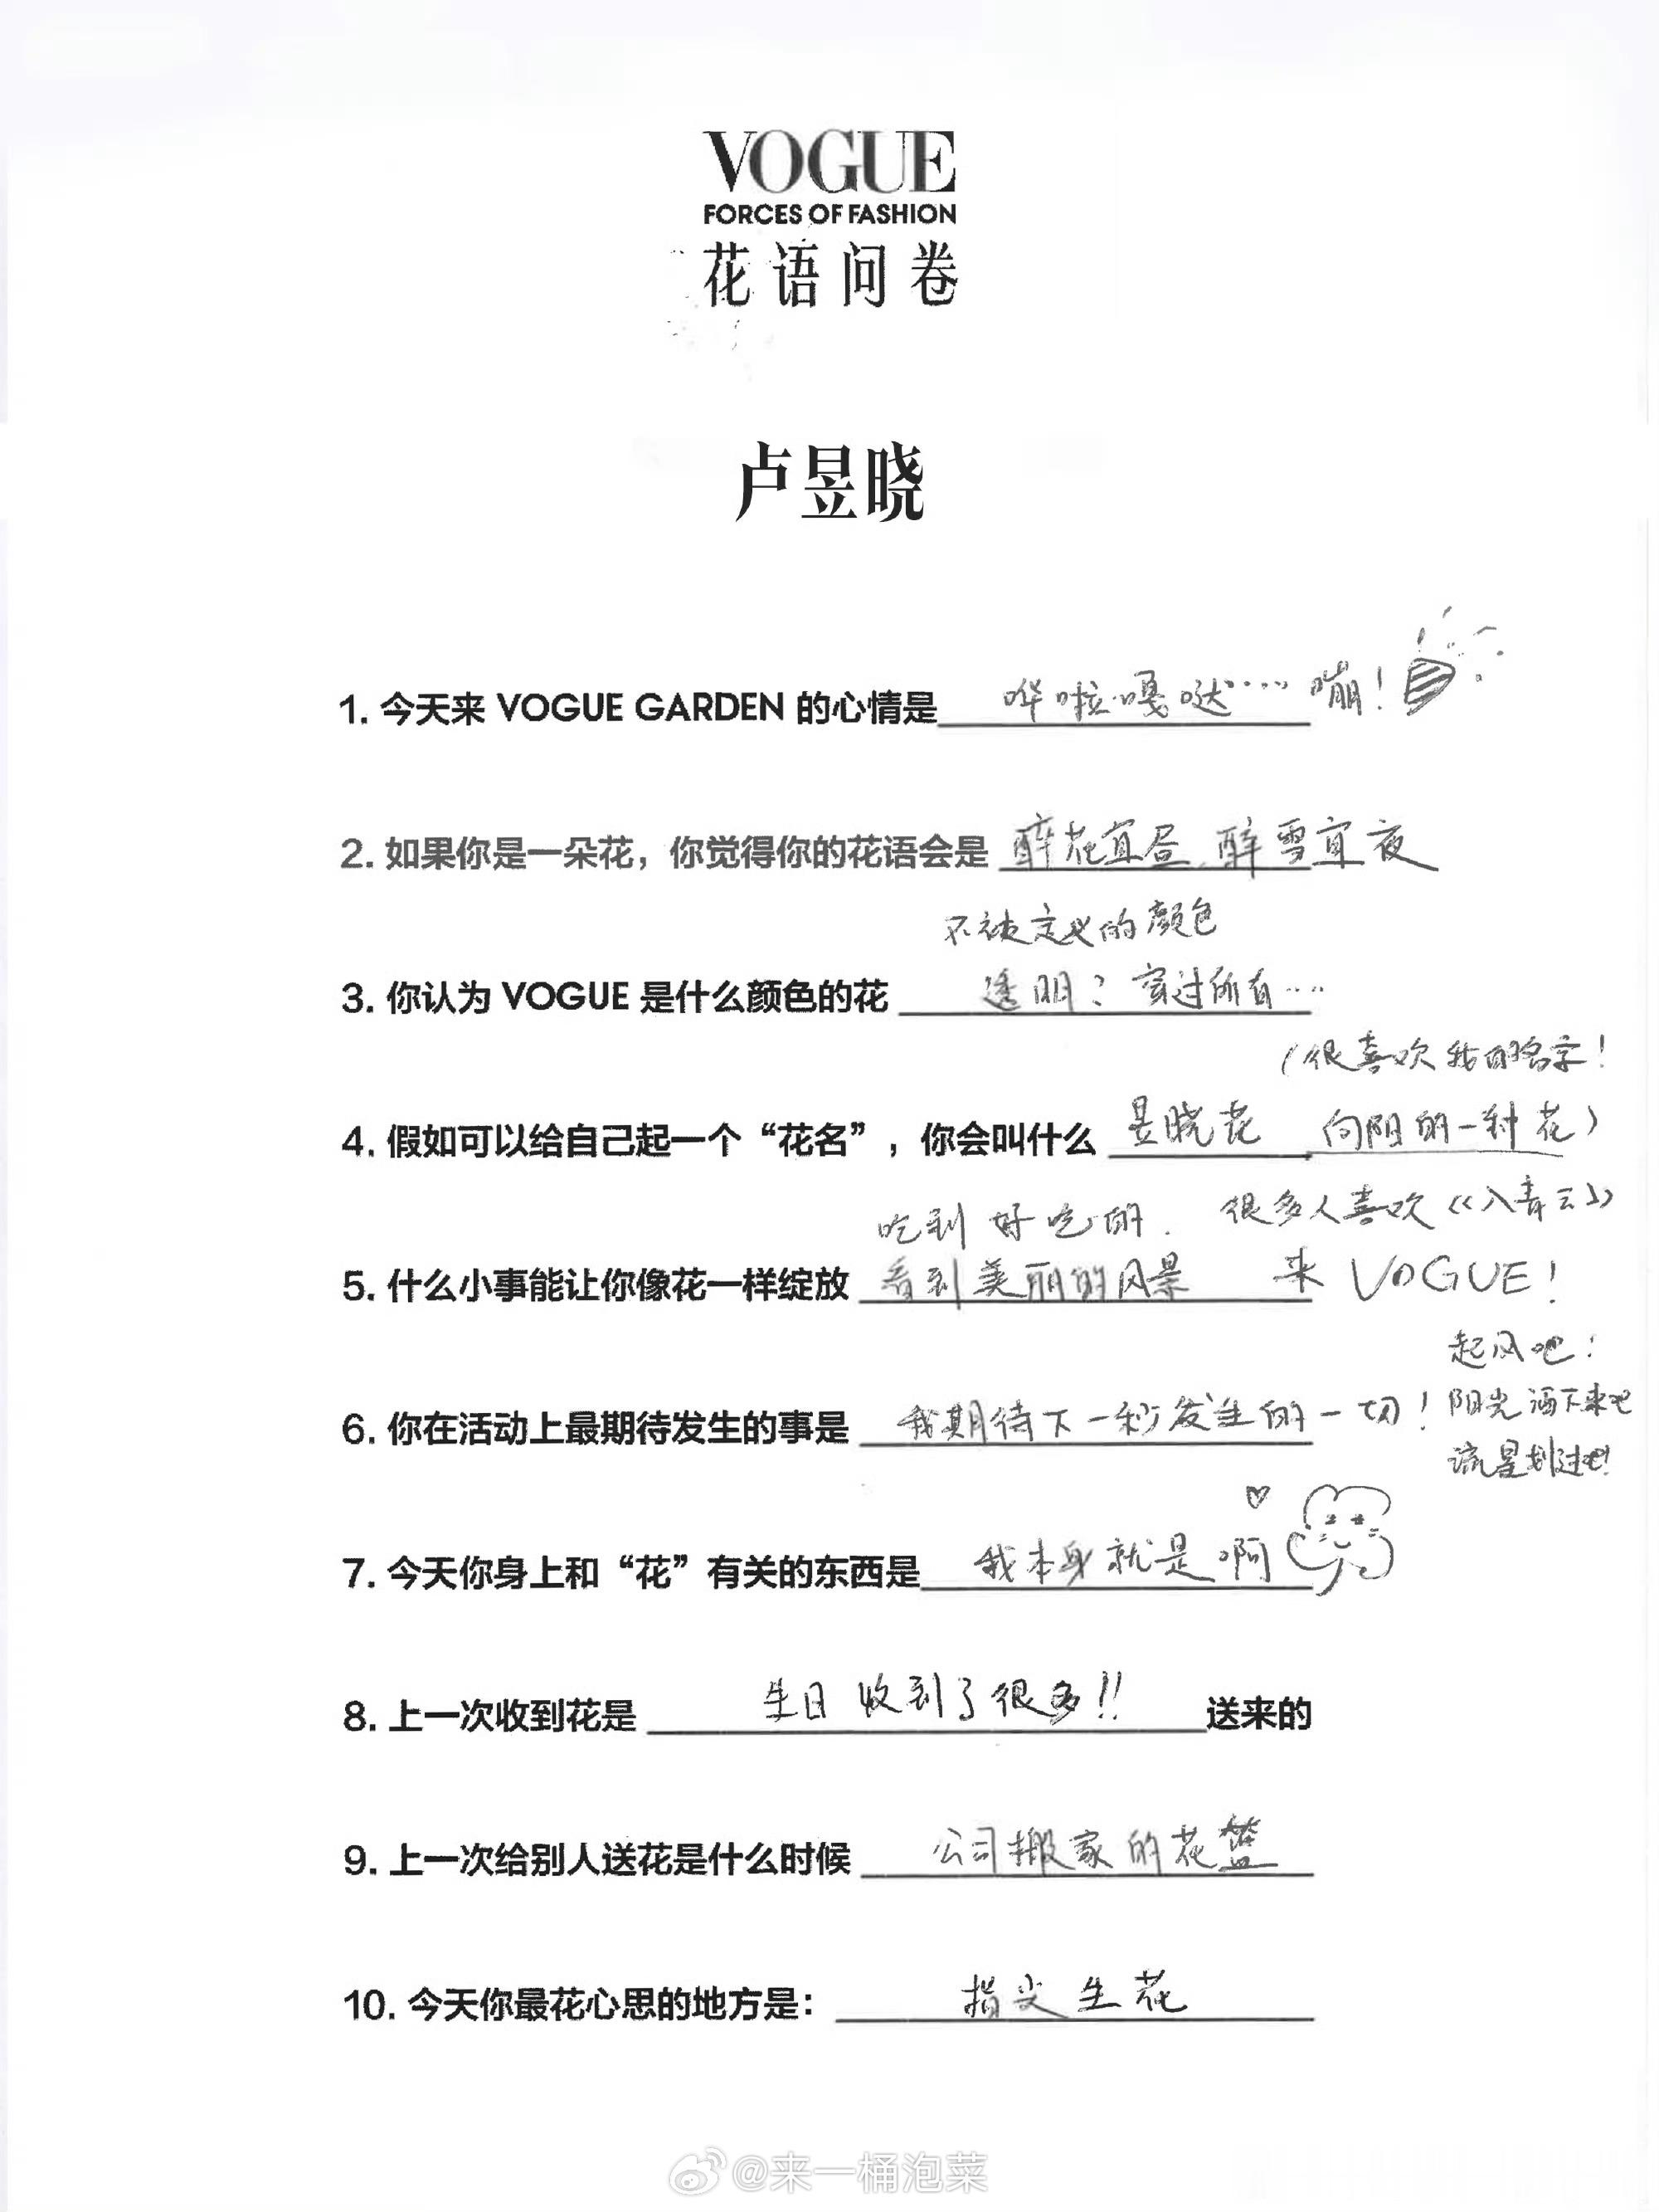 VOGUE
FORCES OF FASHION
花语问卷
卢昱晓
1. 今天来 VOGUE GARDEN 的心情是 哗啦嘎哒······嘣！
2. 如果你是一朵花，你觉得你的花语会是 醉花宜昼、醉雪宜夜
不被定义的颜色
3. 你认为 VOGUE 是什么颜色的花 透明？穿过所有···
（很喜欢我的名字！
4. 假如可以给自己起一个“花名”，你会叫什么 昱晓花 向阳的一种花）
吃到好吃的. 很多人喜欢《入青云》
5. 什么小事能让你像花一样绽放 看到美丽的风景 来 VOGUE！
起风吧！
6. 你在活动上最期待发生的事是 我期待下一秒发生的一切！ 阳光洒下来吧
流星划过吧！
7. 今天你身上和“花”有关的东西是 我本身就是啊
8. 上一次收到花是 生日收到了很多!! 送来的
9. 上一次给别人送花是什么时候 公司搬家的花篮
10. 今天你最花心思的地方是： 指尖生花
@来一桶泡菜